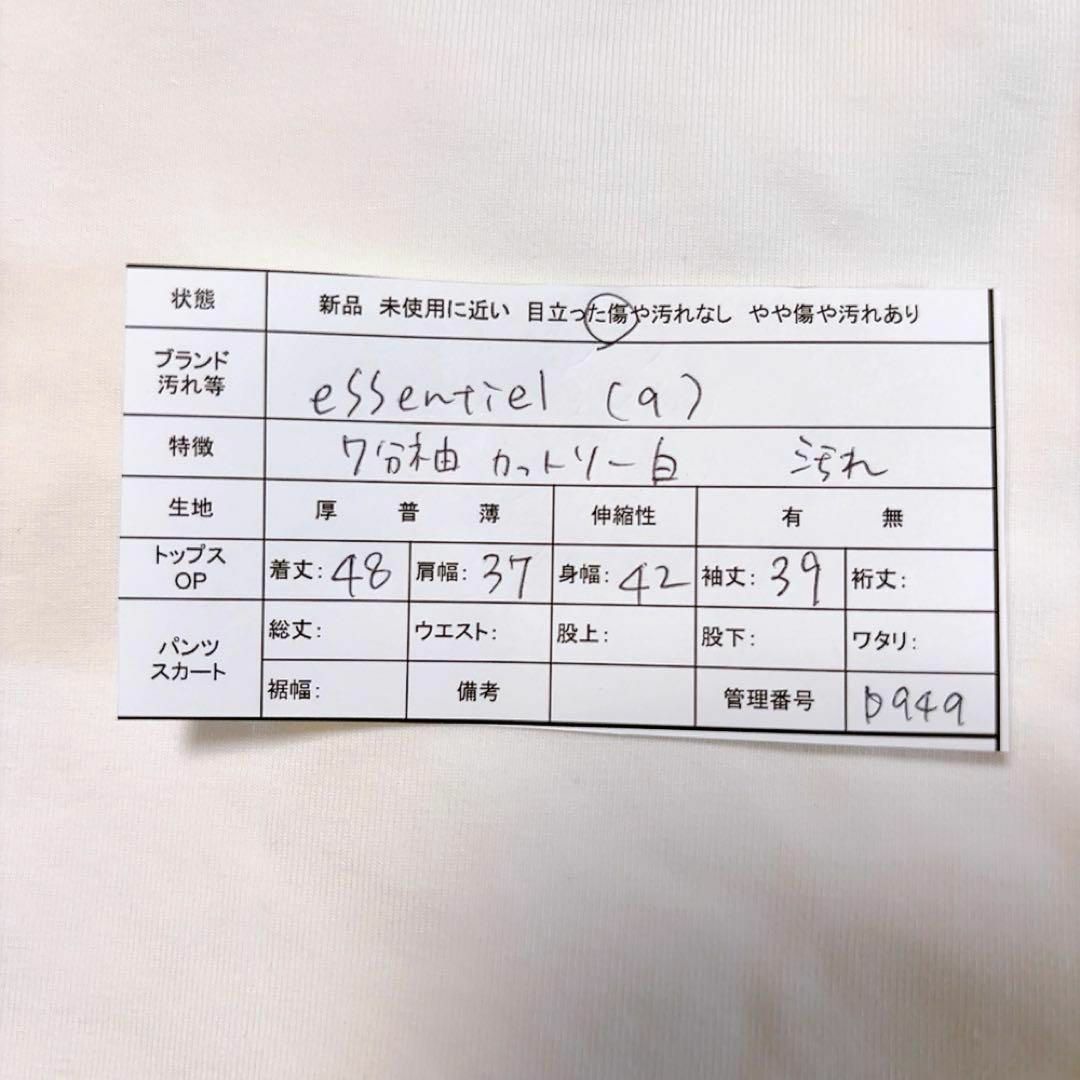 状態 新品 未使用に近い 目立った傷や汚れなし やや傷や汚れあり
ブランド
汚れ等 essentiel (9)
特徴 7分袖 カットソー白 汚れ
生地 厚 普 薄 伸縮性 有 無
トップス
OP 着丈: 48 肩幅: 37 身幅: 42 袖丈: 39 裄丈:
パンツ
スカート 総丈: ウエスト: 股上: 股下: ワタリ:
裾幅: 備考 管理番号 D949